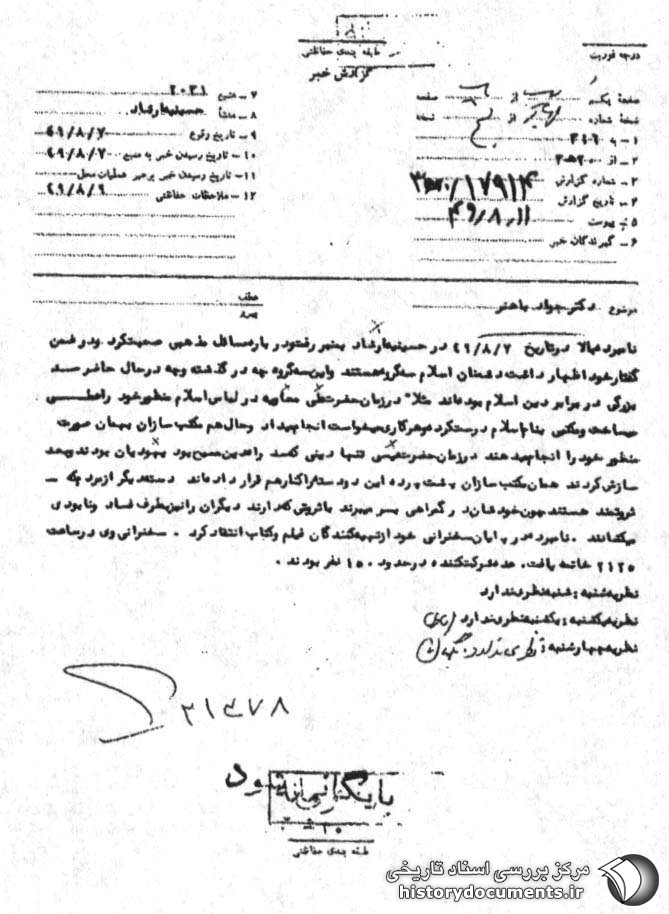 طبقه بندی حفاظتی
گزارش خبر
درجه فوریت
صفحهٔ یکم از صفحه
نسخهٔ شماره از نسخه
۱ - به ۳۱۶
۲ - از
۳ - شماره گزارش ۱۷۹۱۴
۴ - تاریخ گزارش ۴۹/۸/۱۱
۵ - پیوست
۶ - گیرندگان خبر
۷ - منبع ۲۰۳۱
۸ - منشأ حسینیه ارشاد
۹ - تاریخ وقوع ۴۹/۸/۷
۱۰ - تاریخ رسیدن خبر به منبع ۴۹/۸/۷
۱۱ - تاریخ رسیدن خبر برهبر عملیات محل
۱۲ - ملاحظات حفاظتی ۴۹/۸/۹
موضوع دکتر جواد باهنر
عطف
نامبرده بالا در تاریخ ۴۹/۸/۷ در حسینیه ارشاد بمنبر رفت و در باره مسائل مذهبی صحبت کرد . و در ضمن
گفتار خود اظهار داشت دشمنان اسلام سه گروه هستند و این سه گروه چه در گذشته و چه در حال حاضر سد
بزرگی در برابر دین اسلام بوده‌اند مثلا" در زمان حضرت علی معاویه در لباس اسلام منظور خود را عملی
میساخت و مکتبی بنام اسلام درست کرد و هر کاری میخواست انجام میداد و حال هم مکتب سازان بهمان صورت
منظور خود را انجام میدهند در زمان حضرت عیسی تنها دینی که سد راه دین مسیح بود یهودیان بودند و بعد
سازش کردند همان مکتب سازان پشت پرده این دو دسته را کنار هم قرار داده‌اند دسته دیگر از مردم که
ثروتمند هستند چون خودشان در گمراهی بسر میبرند با ثروتی که دارند دیگران را نیز بطرف فساد و نابودی
میکشانند . نامبرده در پایان سخنرانی خود از تهیه کنندگان فیلم و کتاب انتقاد کرد . سخنرانی وی در ساعت
۲۱۲۵ خاتمه یافت. عده شرکت کننده در حدود ۱۵۰ نفر بودند .
نظریه شنبه : شنبه نظری ندارد
نظریه یکشنبه : یکشنبه نظری ندارد
نظریه چهارشنبه : نظری ندارد
بایگانی شود
طبقه بندی حفاظتی
مرکز بررسی اسناد تاریخی
historydocuments.ir